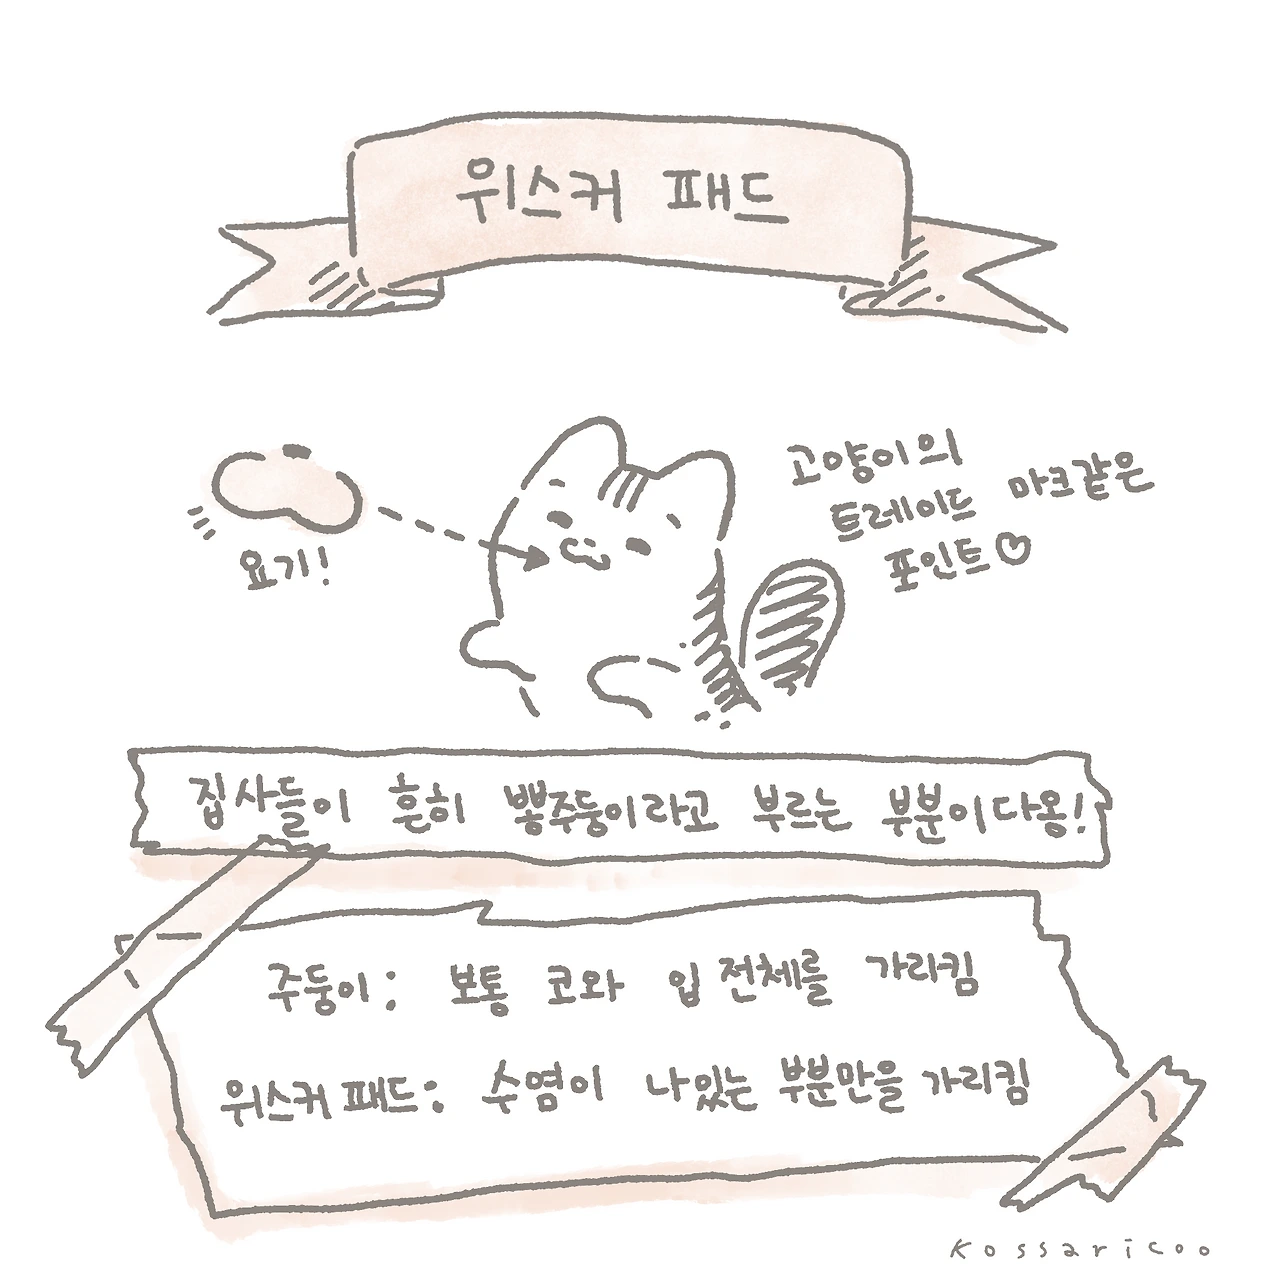 위스커 패드
요기!
고양이의
트레이드 마크같은
포인트
집사들이 흔히 뽕주둥이라고 부르는 부분이다옹!
주둥이: 보통 코와 입 전체를 가리킴
위스커 패드: 수염이 나있는 부분만을 가리킴
Kossaricoo